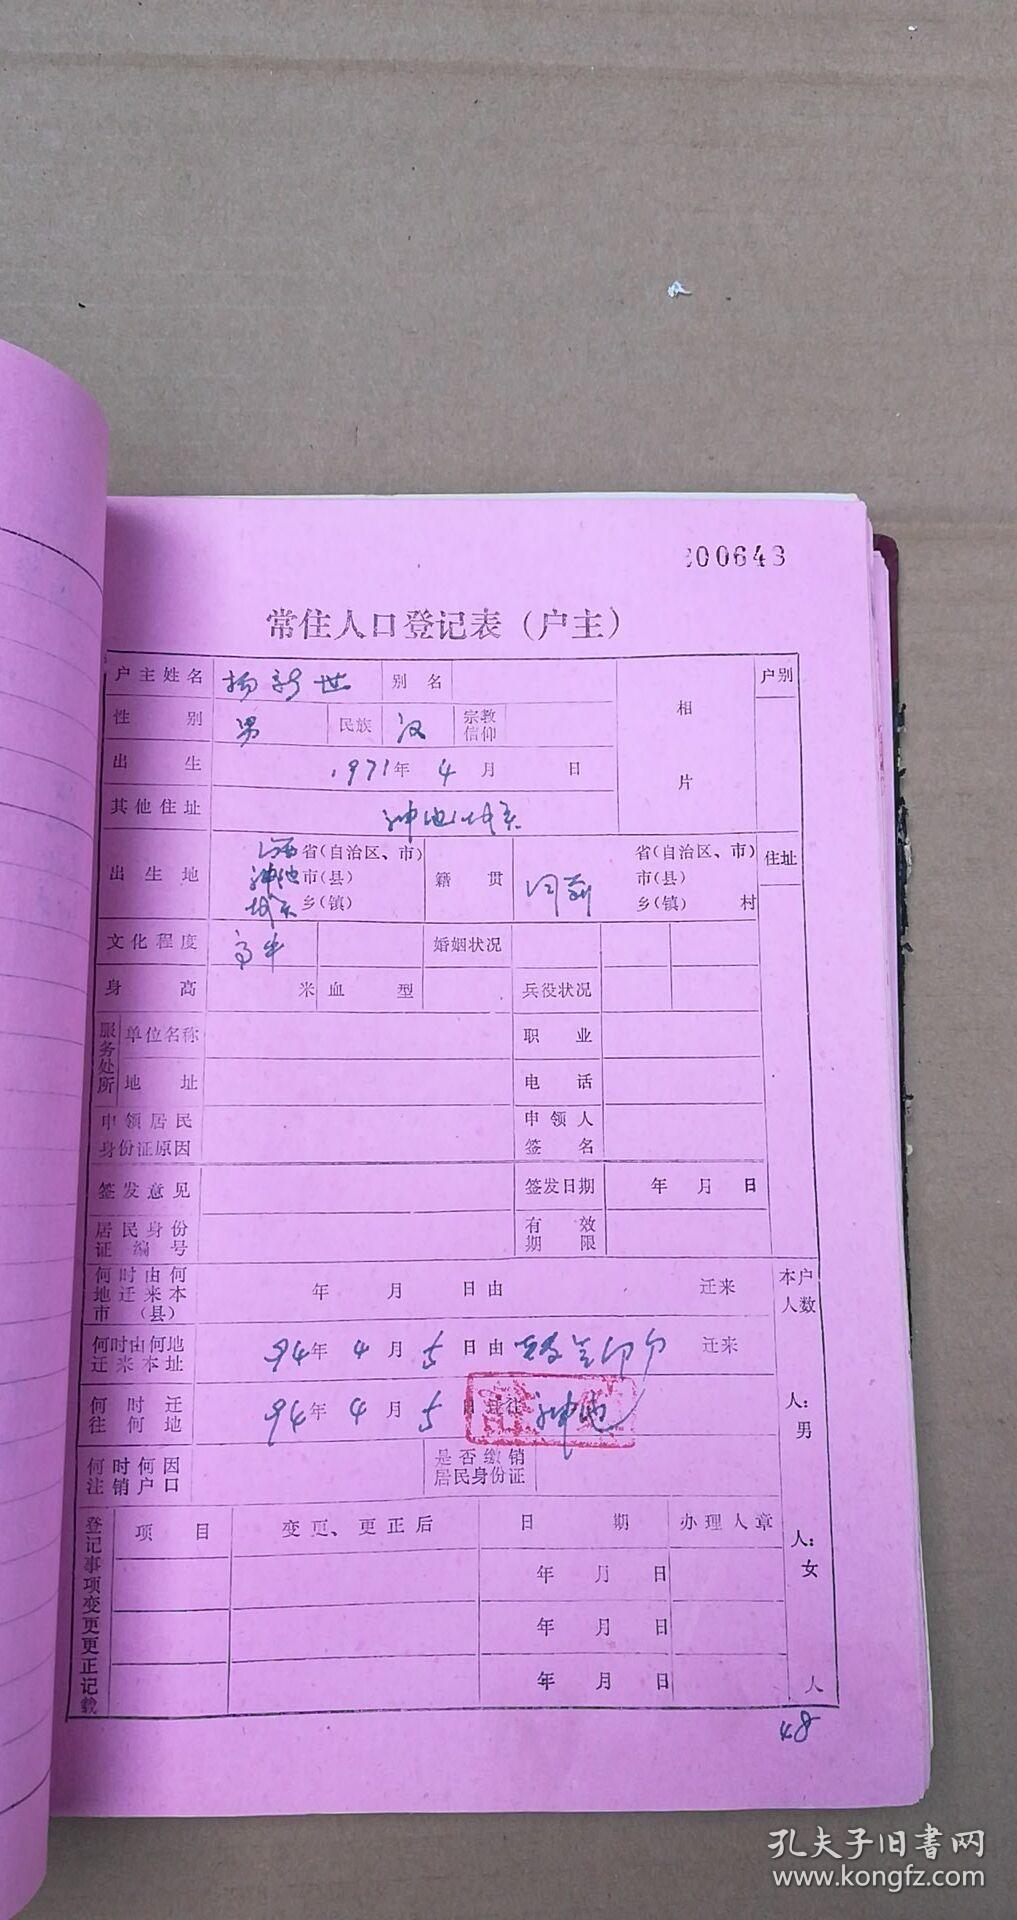 00643
常住人口登记表（户主）
户主姓名 杨新世 别名 户别
性别 男 民族 汉 宗教信仰 相片
出生 1971年 4月 日
其他住址 神池城关
出生地 山西省(自治区、市) 神池市(县) 城关乡(镇) 籍贯 省(自治区、市) 市(县) 乡(镇) 村 住址
文化程度 高中 婚姻状况
身高 米 血型 兵役状况
服务处所 单位名称 职业
地址 电话
申领居民身份证原因 申领人签名
签发意见 签发日期 年 月 日
居民身份证编号 有效期限
何时由何地迁来本市（县） 年 月 日由 迁来 本户人数
何时由何地迁来本址 94年 4月 5日由 迁来
何时迁往何地 94年 4月 5日迁往 神池 人：男
何时何因注销户口 是否缴销居民身份证
登记事项变更更正记载 项目 变更、更正后 日期 办理人章 人：女
年 月 日
年 月 日
年 月 日 人
48
孔夫子旧书网
www.kongfz.com